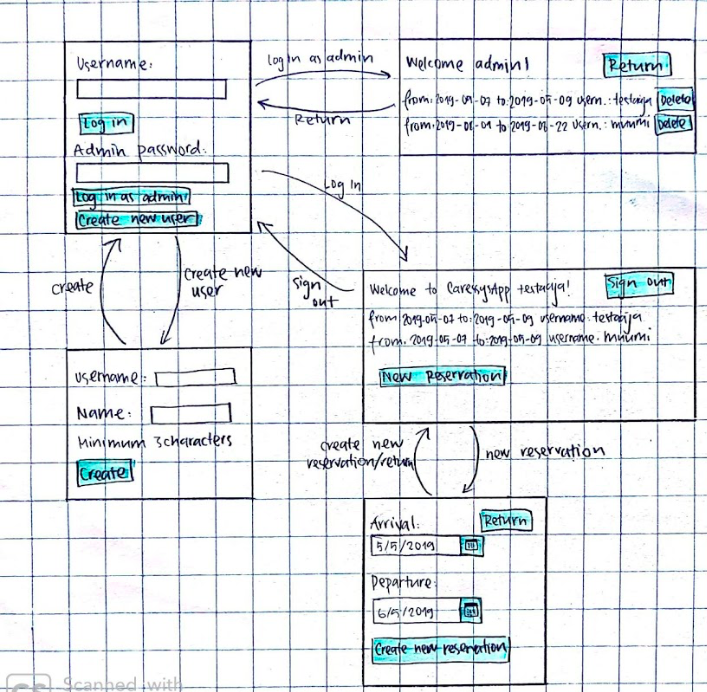 Username:
Log in
Admin password:
Log in as admin
Create new user
Log in as admin
Return
Welcome admin!
Return
from: 2019-05-07 to: 2019-05-09 usern.: testaaja Delete
to 2019-06-22 usern.: muumi Delete
Log in
Sign out
create
Create new user
Welcome to CaressysApp testaaja!
Sign out
from 2019-05-07 to: 2019-05-09 username: testaaja
from: 2019-05-07 to: 2019-05-09 username: muumi
New Reservation
username:
Name:
Minimum 3characters
Create
create new
reservation/return
new reservation
Arrival:
Return
5/5/2019
Departure:
6/5/2019
Create new reservation
CS Scanned with